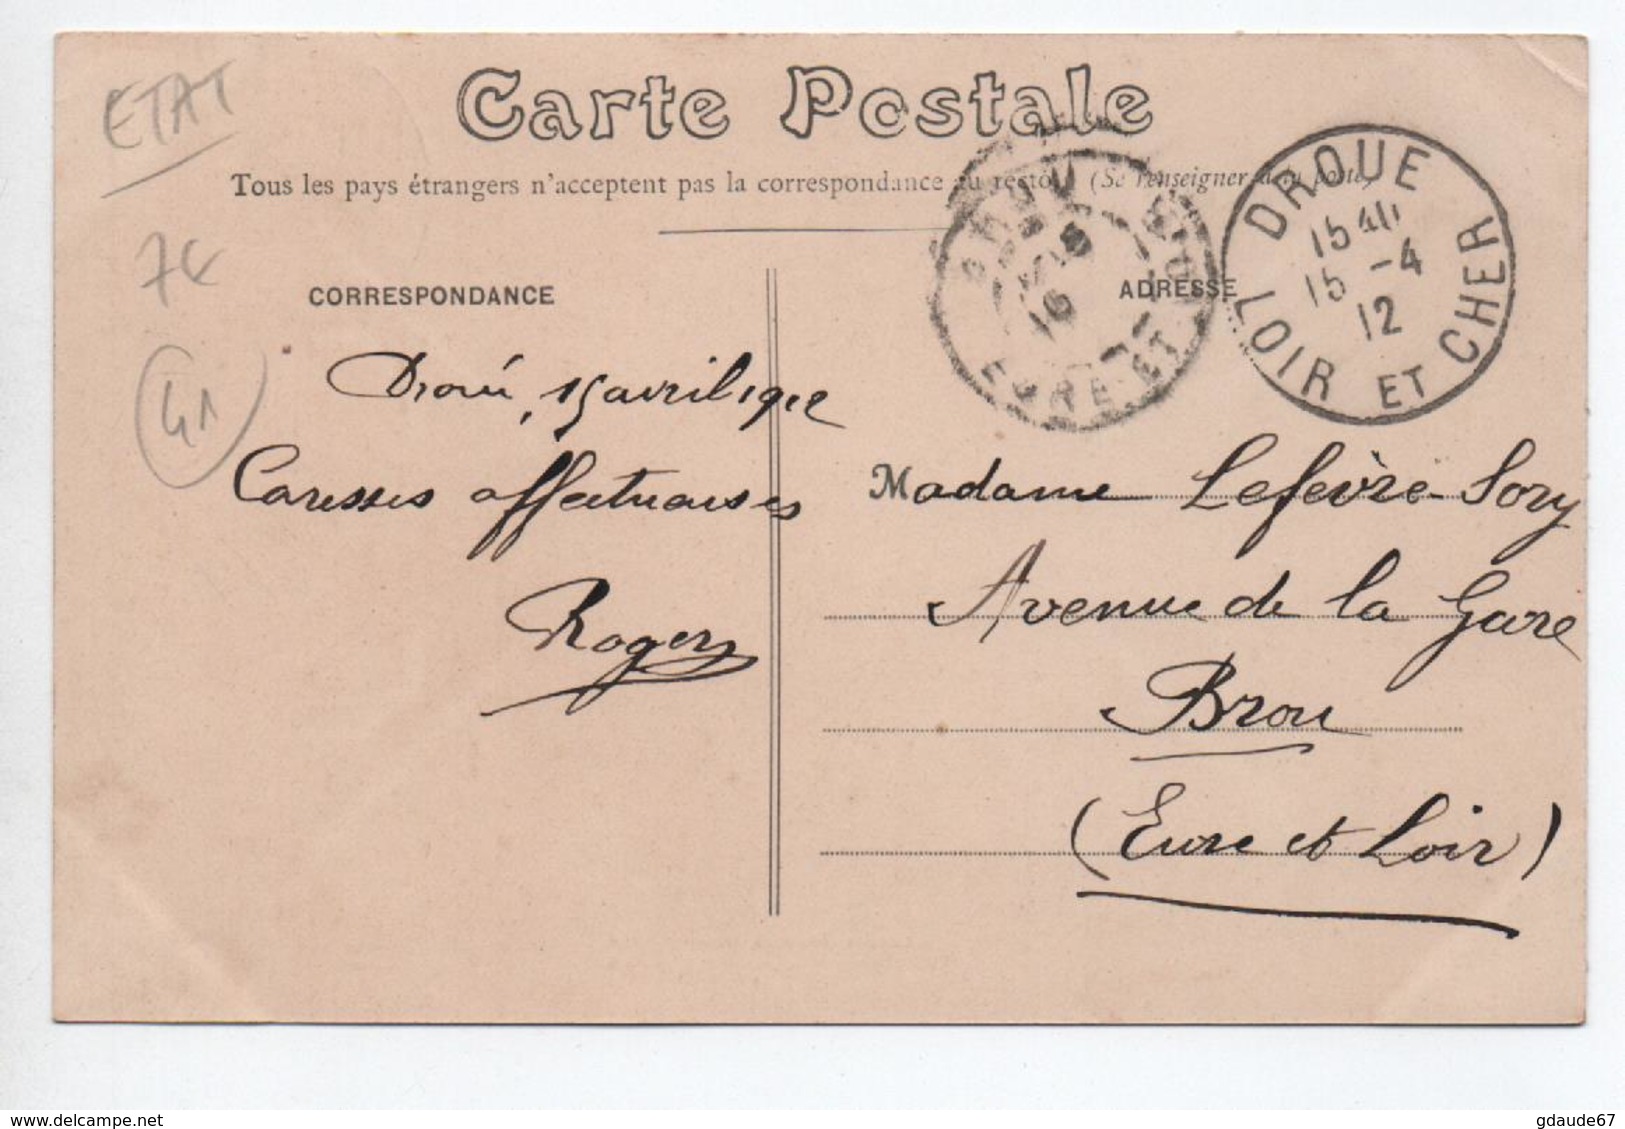 ETAT
7€
41
Carte Postale
Tous les pays étrangers n'acceptent pas la correspondance au recto. (Se renseigner à la poste)
CORRESPONDANCE
ADRESSE
DROUE
15 40
15 -4
12
LOIR ET CHER
BROU
16
EURE-ET
Droué, 15 avril 1912
Caresses affectueuses
Roger
Madame Lefèvre-Sory
Avenue de la Gare
Brou
(Eure et Loir)
www.delcampe.net
gdaude67